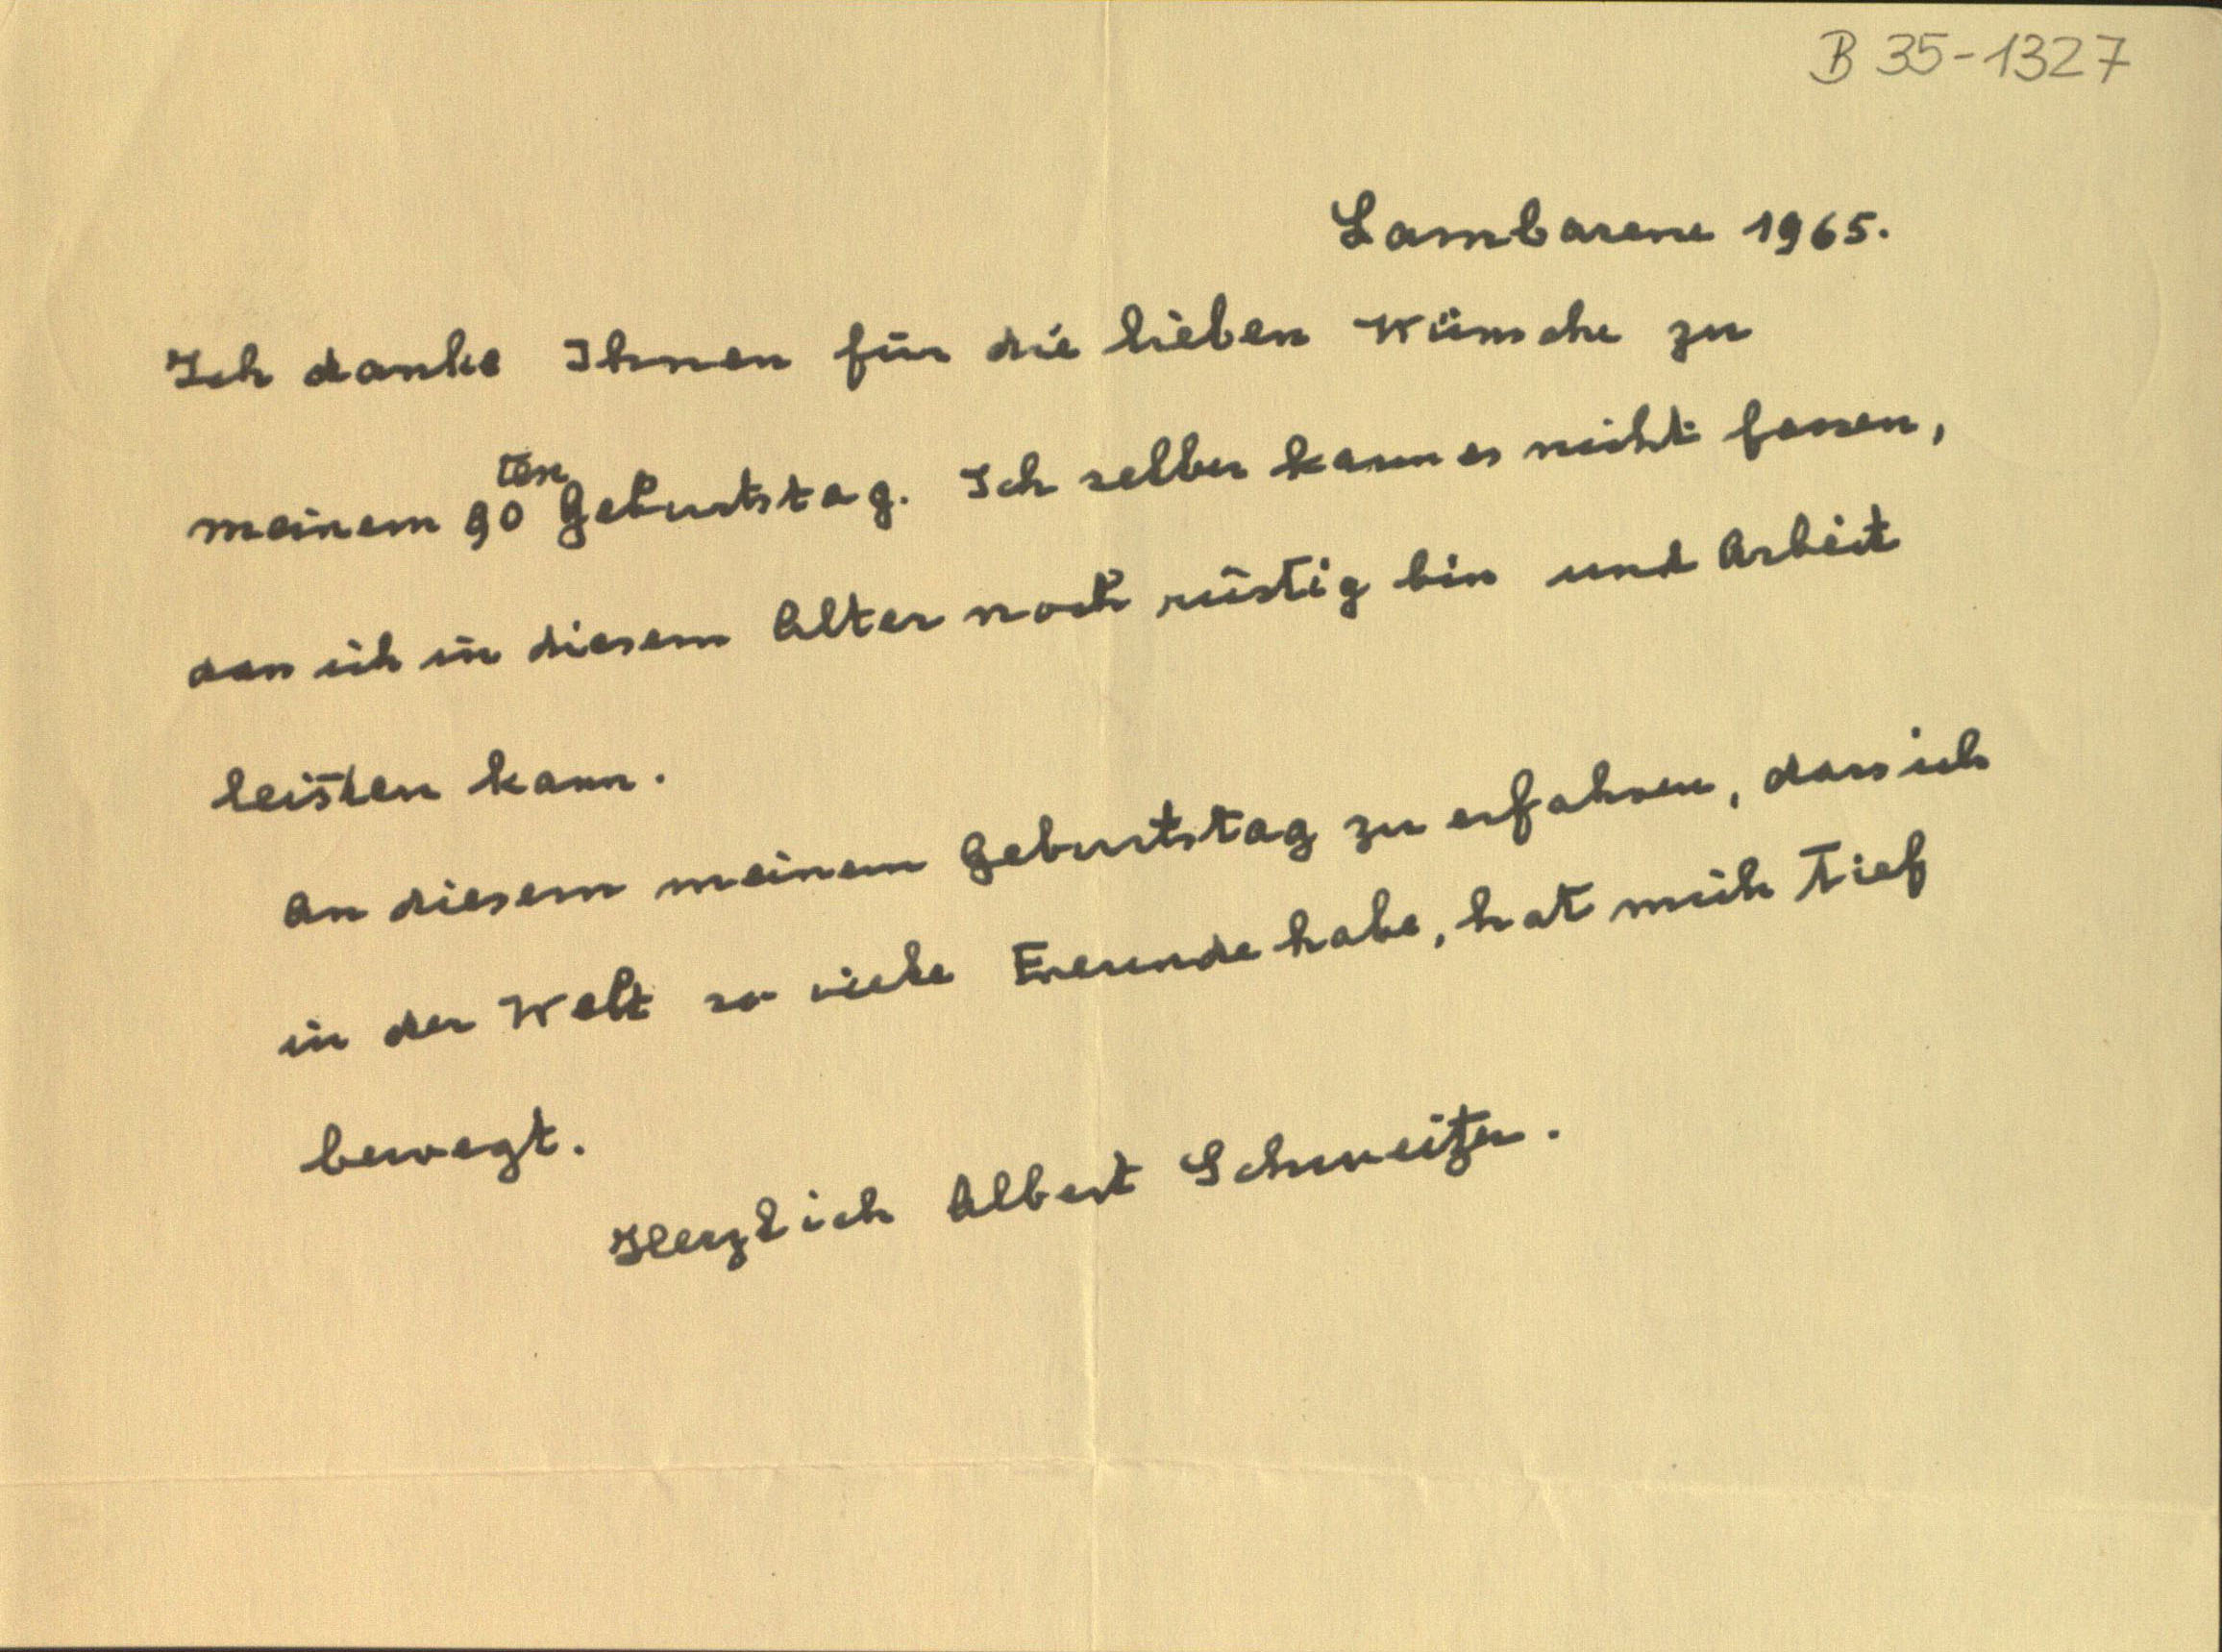 B 35-1327
Lambarene 1965.
Ich danke Ihnen für die lieben Wünsche zu
meinem 90ten Geburtstag. Ich selber kann es nicht fassen,
dass ich in diesem Alter noch rüstig bin und Arbeit
leisten kann.
An diesem meinem Geburtstag zu erfahren, dass ich
in der Welt so viele Freunde habe, hat mich tief
bewegt.
Herzlich Albert Schweitzer.